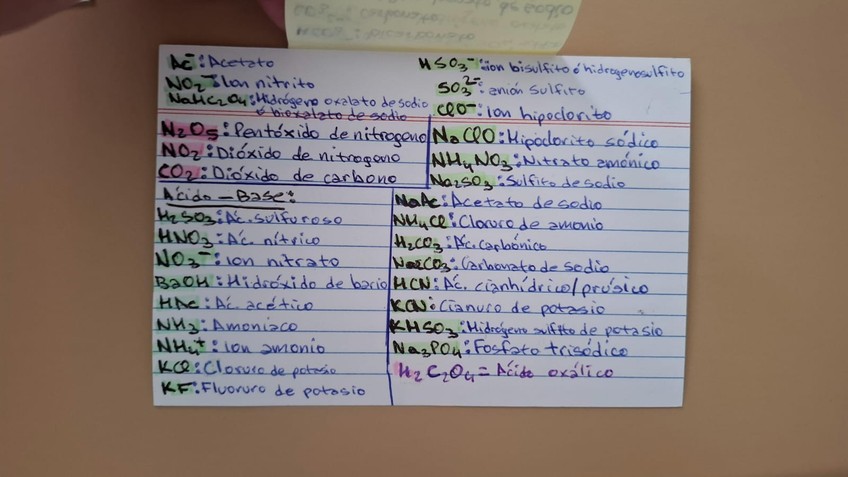 CO₃²⁻: carbonato
HCO₃⁻: bicarbonato
Ac⁻: Acetato
NO₂⁻: Ion nitrito
NaHC₂O₄: Hidrógeno oxalato de sodio
ó bioxalato de sodio
HSO₃⁻: ión bisulfito ó hidrogenosulfito
SO₃²⁻: anión sulfito
ClO⁻: Ion hipoclorito
N₂O₅: Pentóxido de nitrogeno
NO₂: Dióxido de nitrogeno
CO₂: Dióxido de carbono
NaClO: Hipoclorito sódico
NH₄NO₃: Nitrato amónico
Na₂SO₃: Sulfito de sodio
Ácido - Base:
H₂SO₃: Ác. sulfuroso
HNO₃: Ác. nítrico
NO₃⁻: Ion nitrato
BaOH: Hidróxido de bario
HAc: Ác. acético
NH₃: Amoniaco
NH₄⁺: Ion amonio
KCl: Cloruro de potasio
KF: Fluoruro de potasio
NaAc: Acetato de sodio
NH₄Cl: Cloruro de amonio
H₂CO₃: Ác. carbónico
Na₂CO₃: Carbonato de sodio
HCN: Ác. cianhídrico/prúsico
KCN: Cianuro de potasio
KHSO₃: Hidrógeno sulfito de potasio
Na₃PO₄: Fosfato trisódico
H₂C₂O₄ = Ácido oxálico